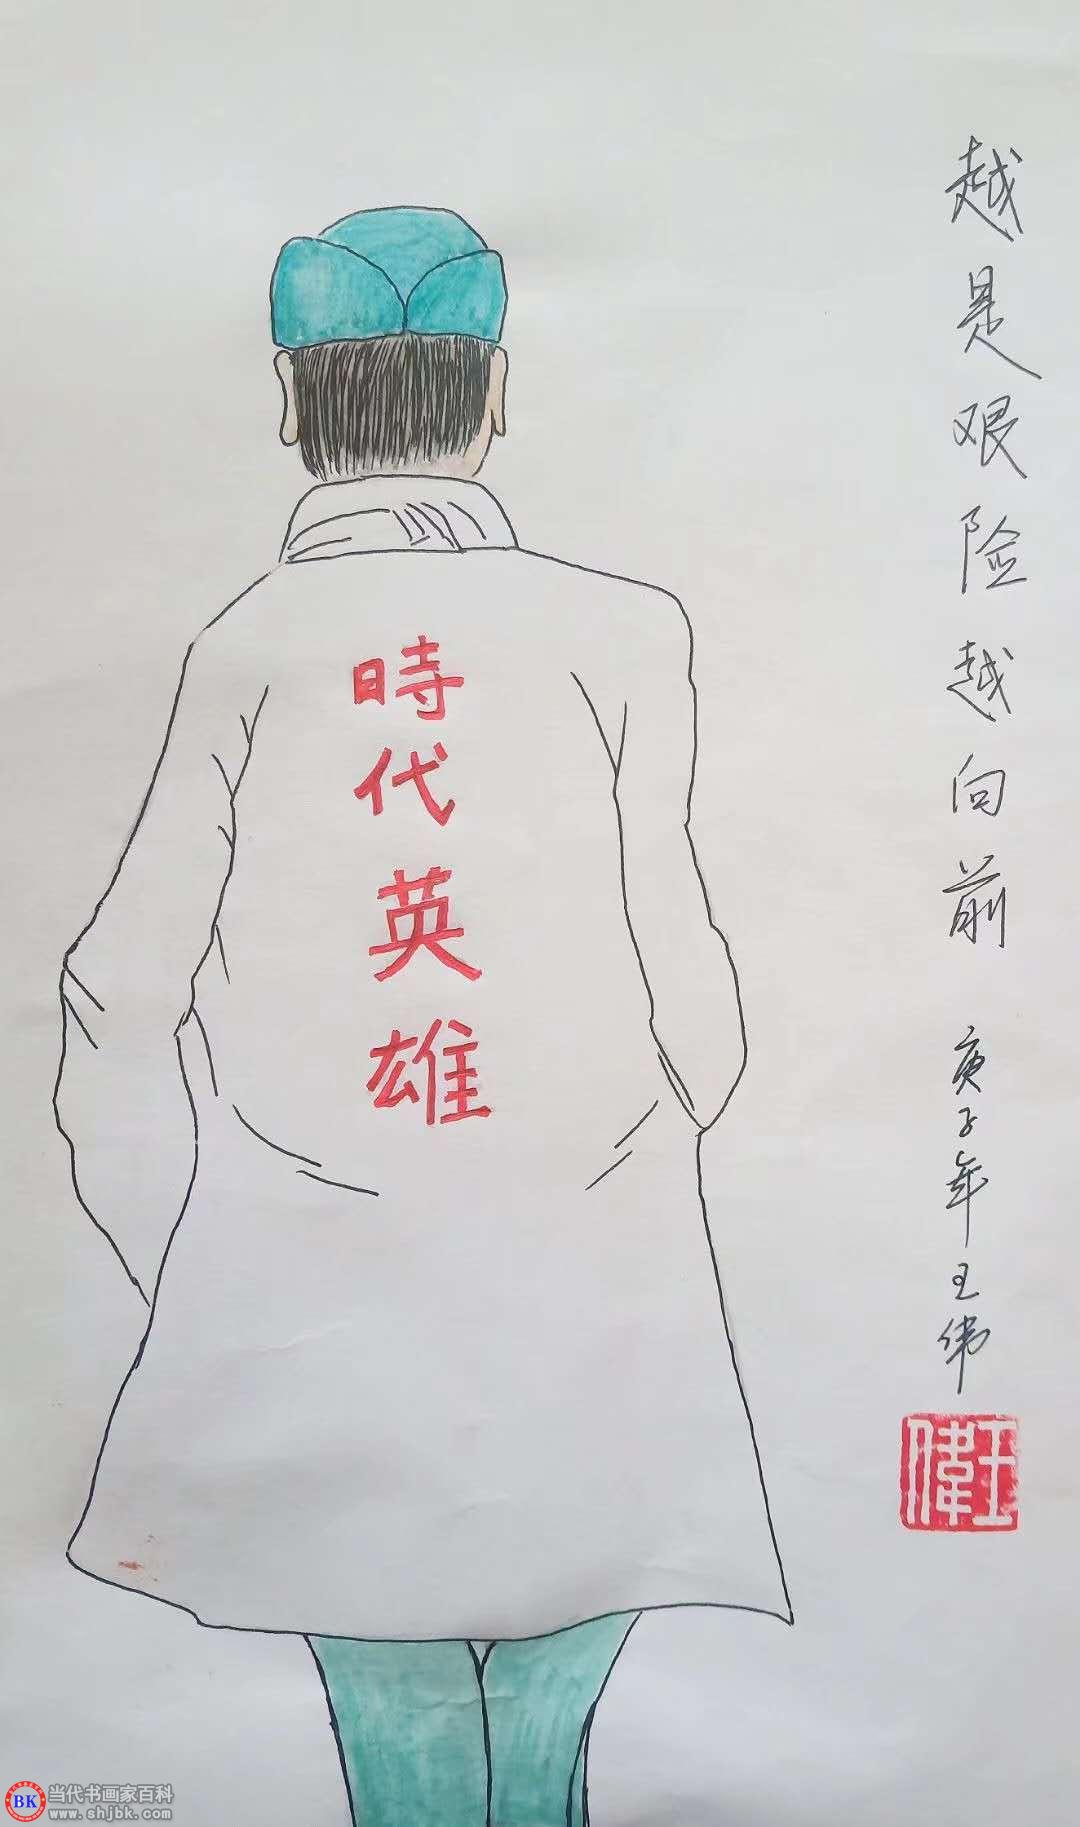 越是艰险越向前
庚子年王伟
王偉
時代英雄
BK
当代书画家百科
www.shjbk.com